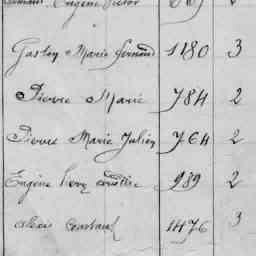 Eugène Victor
Gaston Marie Fernand 1180 3
Pierre Marie 784 2
Pierre Marie Julien 764 2
Eugène Henri 989 2
Alexis Constant 1476 3